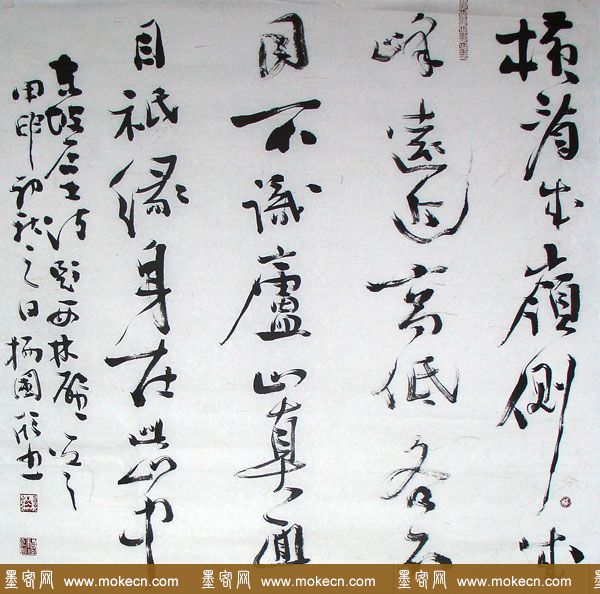 橫看成嶺側成
峰遠近高低各不
同不識廬山真面
目祇緣身在此山中
東坡居士詩題西林壁
甲申初秋之日楊國
墨客网 www.mokecn.com 墨客网 www.mokecn.com 墨客网 www.mokecn.com